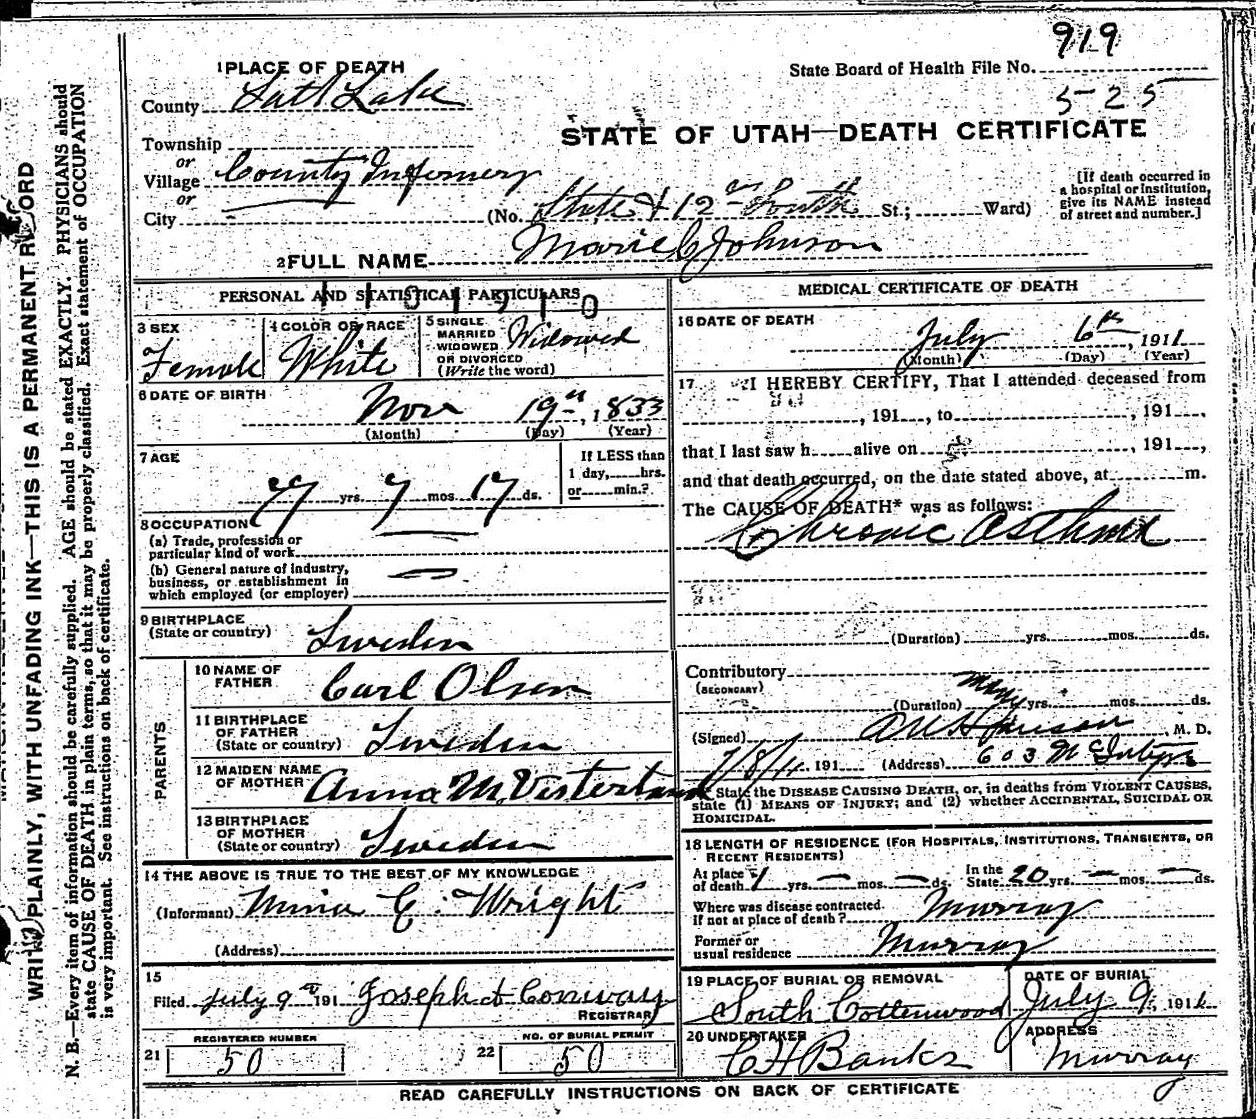 919
State Board of Health File No.
525
1 PLACE OF DEATH
County Salt Lake
STATE OF UTAH—DEATH CERTIFICATE
Township
or
Village County Infirmery
or
City (No. State & 12 South St.; Ward)
[If death occurred in
a hospital or institution,
give its NAME instead
of street and number.]
2 FULL NAME Marie C Johnson
PERSONAL AND STATISTICAL PARTICULARS
3 SEX
Female
4 COLOR OR RACE
White
5 SINGLE
MARRIED
WIDOWED
OR DIVORCED
(Write the word)
Widowed
6 DATE OF BIRTH
Nov 19th, 1833
(Month) (Day) (Year)
7 AGE
77 yrs. 7 mos. 17 ds.
If LESS than
1 day, hrs.
or min.?
8 OCCUPATION
(a) Trade, profession or
particular kind of work
(b) General nature of industry,
business, or establishment in
which employed (or employer)
9 BIRTHPLACE
(State or country)
Sweden
PARENTS
10 NAME OF
FATHER
Carl Olsen
11 BIRTHPLACE
OF FATHER
(State or country)
Sweden
12 MAIDEN NAME
OF MOTHER
Anna M.
13 BIRTHPLACE
OF MOTHER
(State or country)
Sweden
14 THE ABOVE IS TRUE TO THE BEST OF MY KNOWLEDGE
(Informant) Minia E. Wright
(Address)
15
Filed July 9th 191 Joseph Conway
REGISTRAR
21 REGISTERED NUMBER
50
22 NO. OF BURIAL PERMIT
50
MEDICAL CERTIFICATE OF DEATH
16 DATE OF DEATH
July 6th, 1911
(Month) (Day) (Year)
17 I HEREBY CERTIFY, That I attended deceased from
, 191 , to , 191 ,
that I last saw h alive on , 191 ,
and that death occurred, on the date stated above, at m.
The CAUSE OF DEATH* was as follows:
Chronic Asthma
(Duration) yrs. mos. ds.
Contributory
(SECONDARY)
(Duration) many yrs. mos. ds.
(Signed) M. D.
7/8/11 191 (Address) 603 McIntyre
* State the DISEASE CAUSING DEATH, or, in deaths from VIOLENT CAUSES,
state (1) MEANS OF INJURY; and (2) whether ACCIDENTAL, SUICIDAL OR
HOMICIDAL.
18 LENGTH OF RESIDENCE (FOR HOSPITALS, INSTITUTIONS, TRANSIENTS, OR
RECENT RESIDENTS)
At place
of death 1 yrs. — mos. — ds.
In the
State 20 yrs. — mos. — ds.
Where was disease contracted.
If not at place of death? Murray
Former or
usual residence Murray
19 PLACE OF BURIAL OR REMOVAL
South Cottenwood
DATE OF BURIAL
July 9, 1911
20 UNDERTAKER
C H Banks
ADDRESS
Murray
READ CAREFULLY INSTRUCTIONS ON BACK OF CERTIFICATE
WRITE PLAINLY, WITH UNFADING INK—THIS IS A PERMANENT RECORD
N. B.—Every item of information should be carefully supplied. AGE should be stated EXACTLY. PHYSICIANS should
state CAUSE OF DEATH in plain terms, so that it may be properly classified. Exact statement of OCCUPATION
is very important. See instructions on back of certificate.